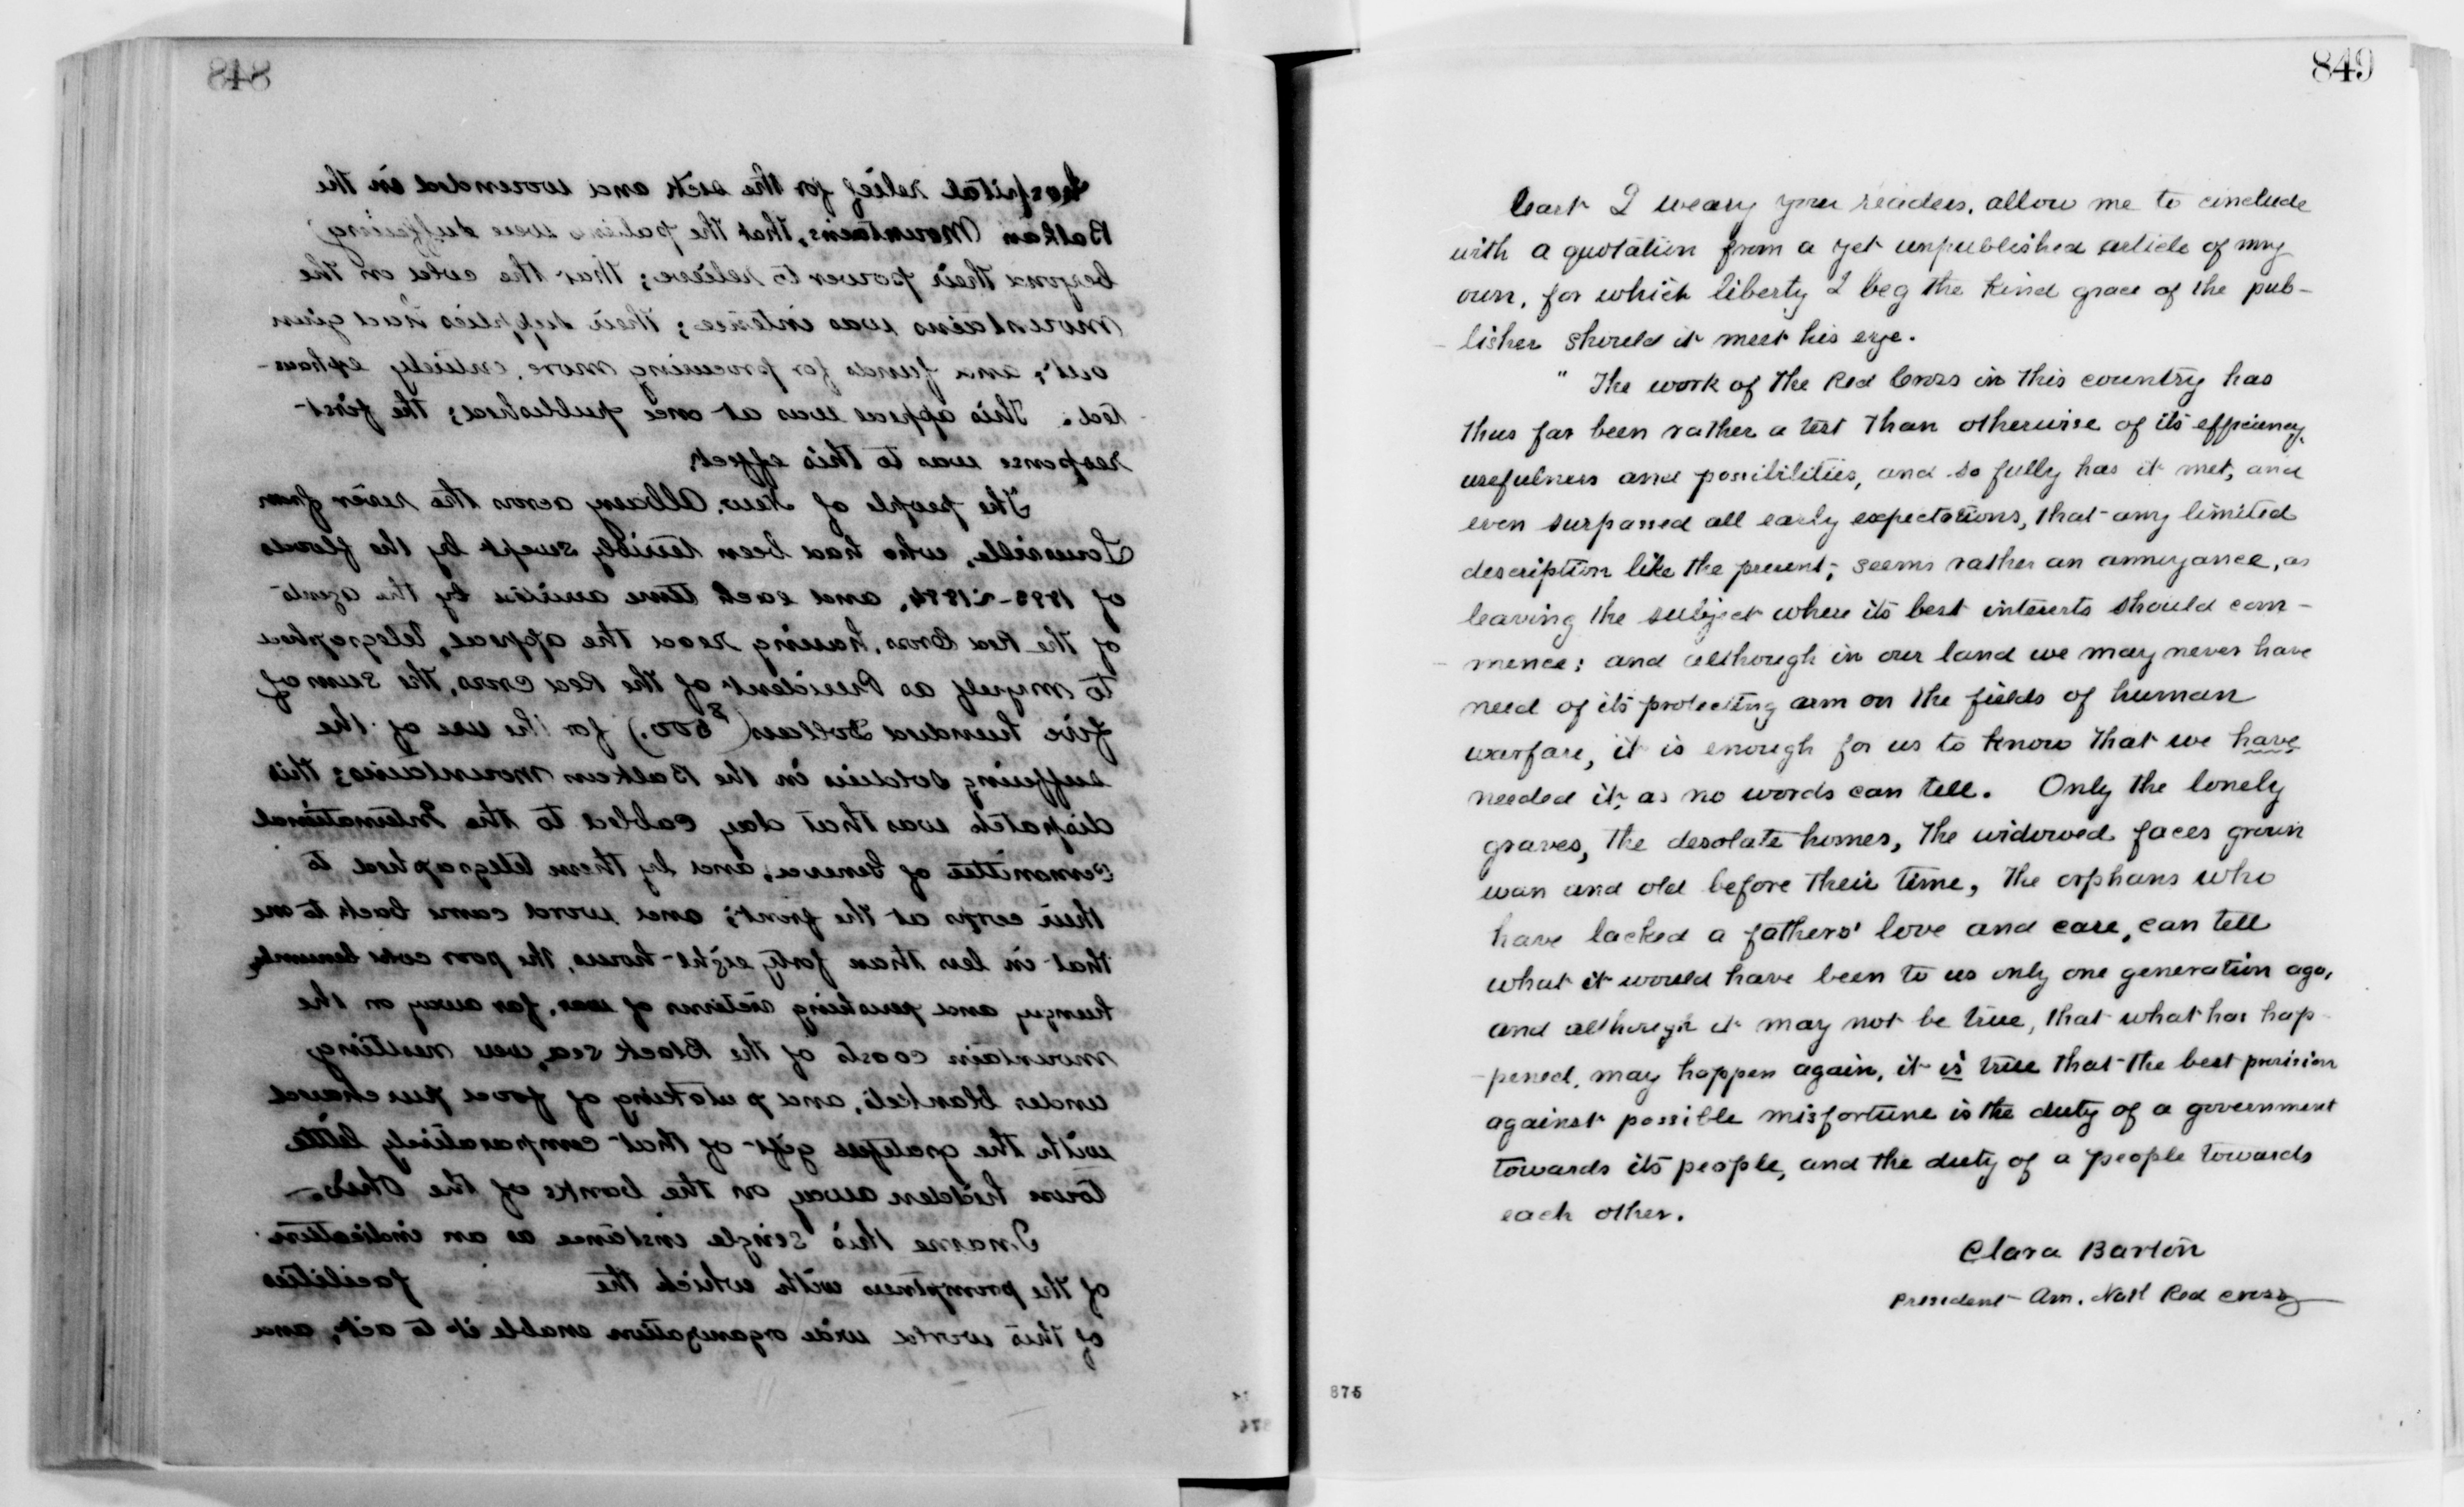 848
hospital relief for the sick and wounded in the
Balkan Mountains, that the patients were suffering
beyond their power to relieve; that the cold in the
mountains was intense; their supplies had given
out, and funds for procuring more, entirely exhaus-
ted. This appeal was at once published; the first
response was to this effect,
The people of New Albany across the river from
Louisville, who had been terribly swept by the floods
of 1883-1884, and each time assisted by the agents
of the Red Cross, having read the appeal, telegraphed
to myself as President of the Red Cross, the sum of
five hundred Dollars ($500.) for the use of the
suffering soldiers in the Balkan Mountains; this
dispatch was that day cabled to the International
Committee of Geneva, and by them telegraphed to
their corps at the front; and word came back to me
that in less than forty eight hours, the poor cold
hungry and perishing victims of war, far away on the
mountain coasts of the Black Sea, were nestling
under blankets, and partaking of food purchased
with the grateful gift of that comparatively little
town hidden away on the banks of the Ohio.
I name this single instance as an indication
of the promptness with which the facilities
of this world wide organization enable it to act, and
874
849
Least I weary your readers, allow me to conclude
with a quotation from a yet unpublished article of my
own, for which liberty I beg the kind grace of the pub-
-lisher should it meet his eye.
" The work of the Red Cross in this country has
thus far been rather a test than otherwise of its efficiency,
usefulness and possibilities, and so fully has it met, and
even surpassed all early expectations, that any limited
description like the present, seems rather an annoyance, as
leaving the subject where its best interests should com-
-mence; and although in our land we may never have
need of its protecting arm on the fields of human
warfare, it is enough for us to know that we have
needed it, as no words can tell. Only the lonely
graves, the desolate homes, the widowed faces grown
wan and old before their time, the orphans who
have lacked a fathers' love and care, can tell
what it would have been to us only one generation ago,
and although it may not be true, that what has hap-
-pened, may happen again, it is true that the best provision
against possible misfortune is the duty of a government
towards its people, and the duty of a people towards
each other.
Clara Barton
President Am. Natl Red Cross
875